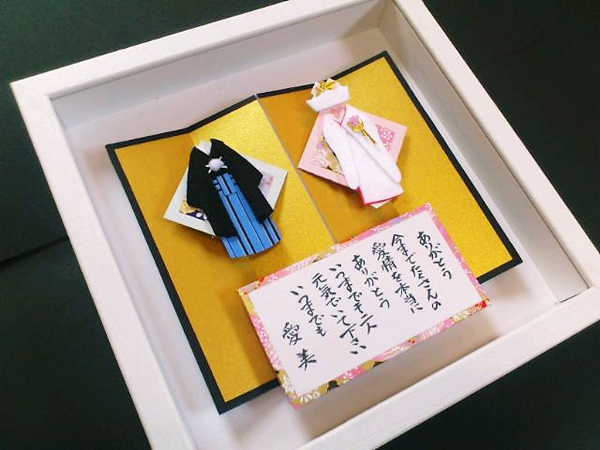 ありがとう
今までたくさんの
愛情を本当に
ありがとう
いつまでも二人
元気でいて下さい
いつまでも
愛美